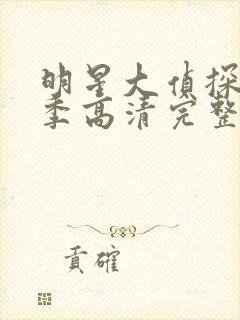 明星大偵探
季高清完整
貢確